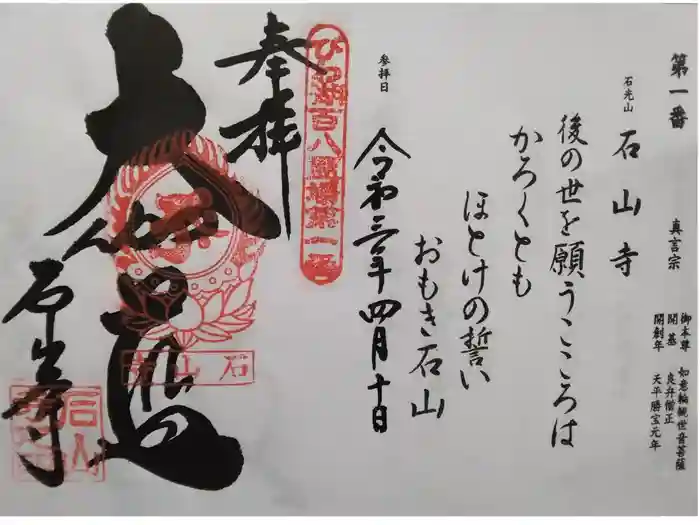 第一番
石光山 石山寺
真言宗
御本尊 如意輪観世音菩薩
開基 良弁僧正
開創年 天平勝宝元年
後の世を願うこころは
かろくとも
ほとけの誓い
おもき石山
参拝日
令和三年四月十日
びわ湖百八霊場第一番
奉拝
大伽藍
石山寺
石山寺